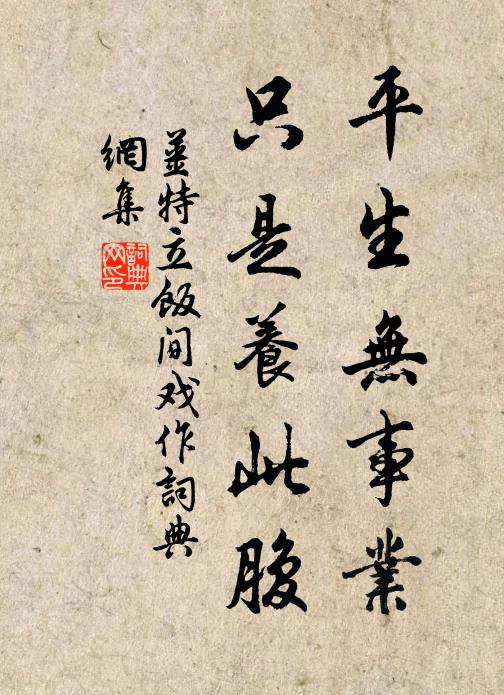 平生無事業
只是養此腹
薑特立飯间戏作詞典
網集
詞典
网印